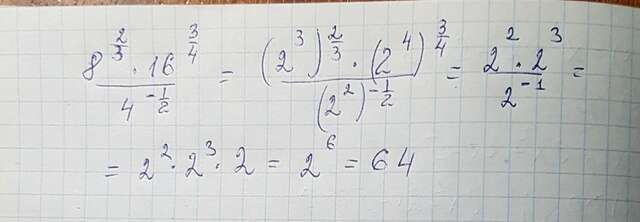 \frac{8^{\frac{2}{3}} \cdot 16^{\frac{3}{4}}}{4^{-\frac{1}{2}}} = \frac{(2^3)^{\frac{2}{3}} \cdot (2^4)^{\frac{3}{4}}}{(2^2)^{-\frac{1}{2}}} = \frac{2^2 \cdot 2^3}{2^{-1}} =
= 2^2 \cdot 2^3 \cdot 2 = 2^6 = 64